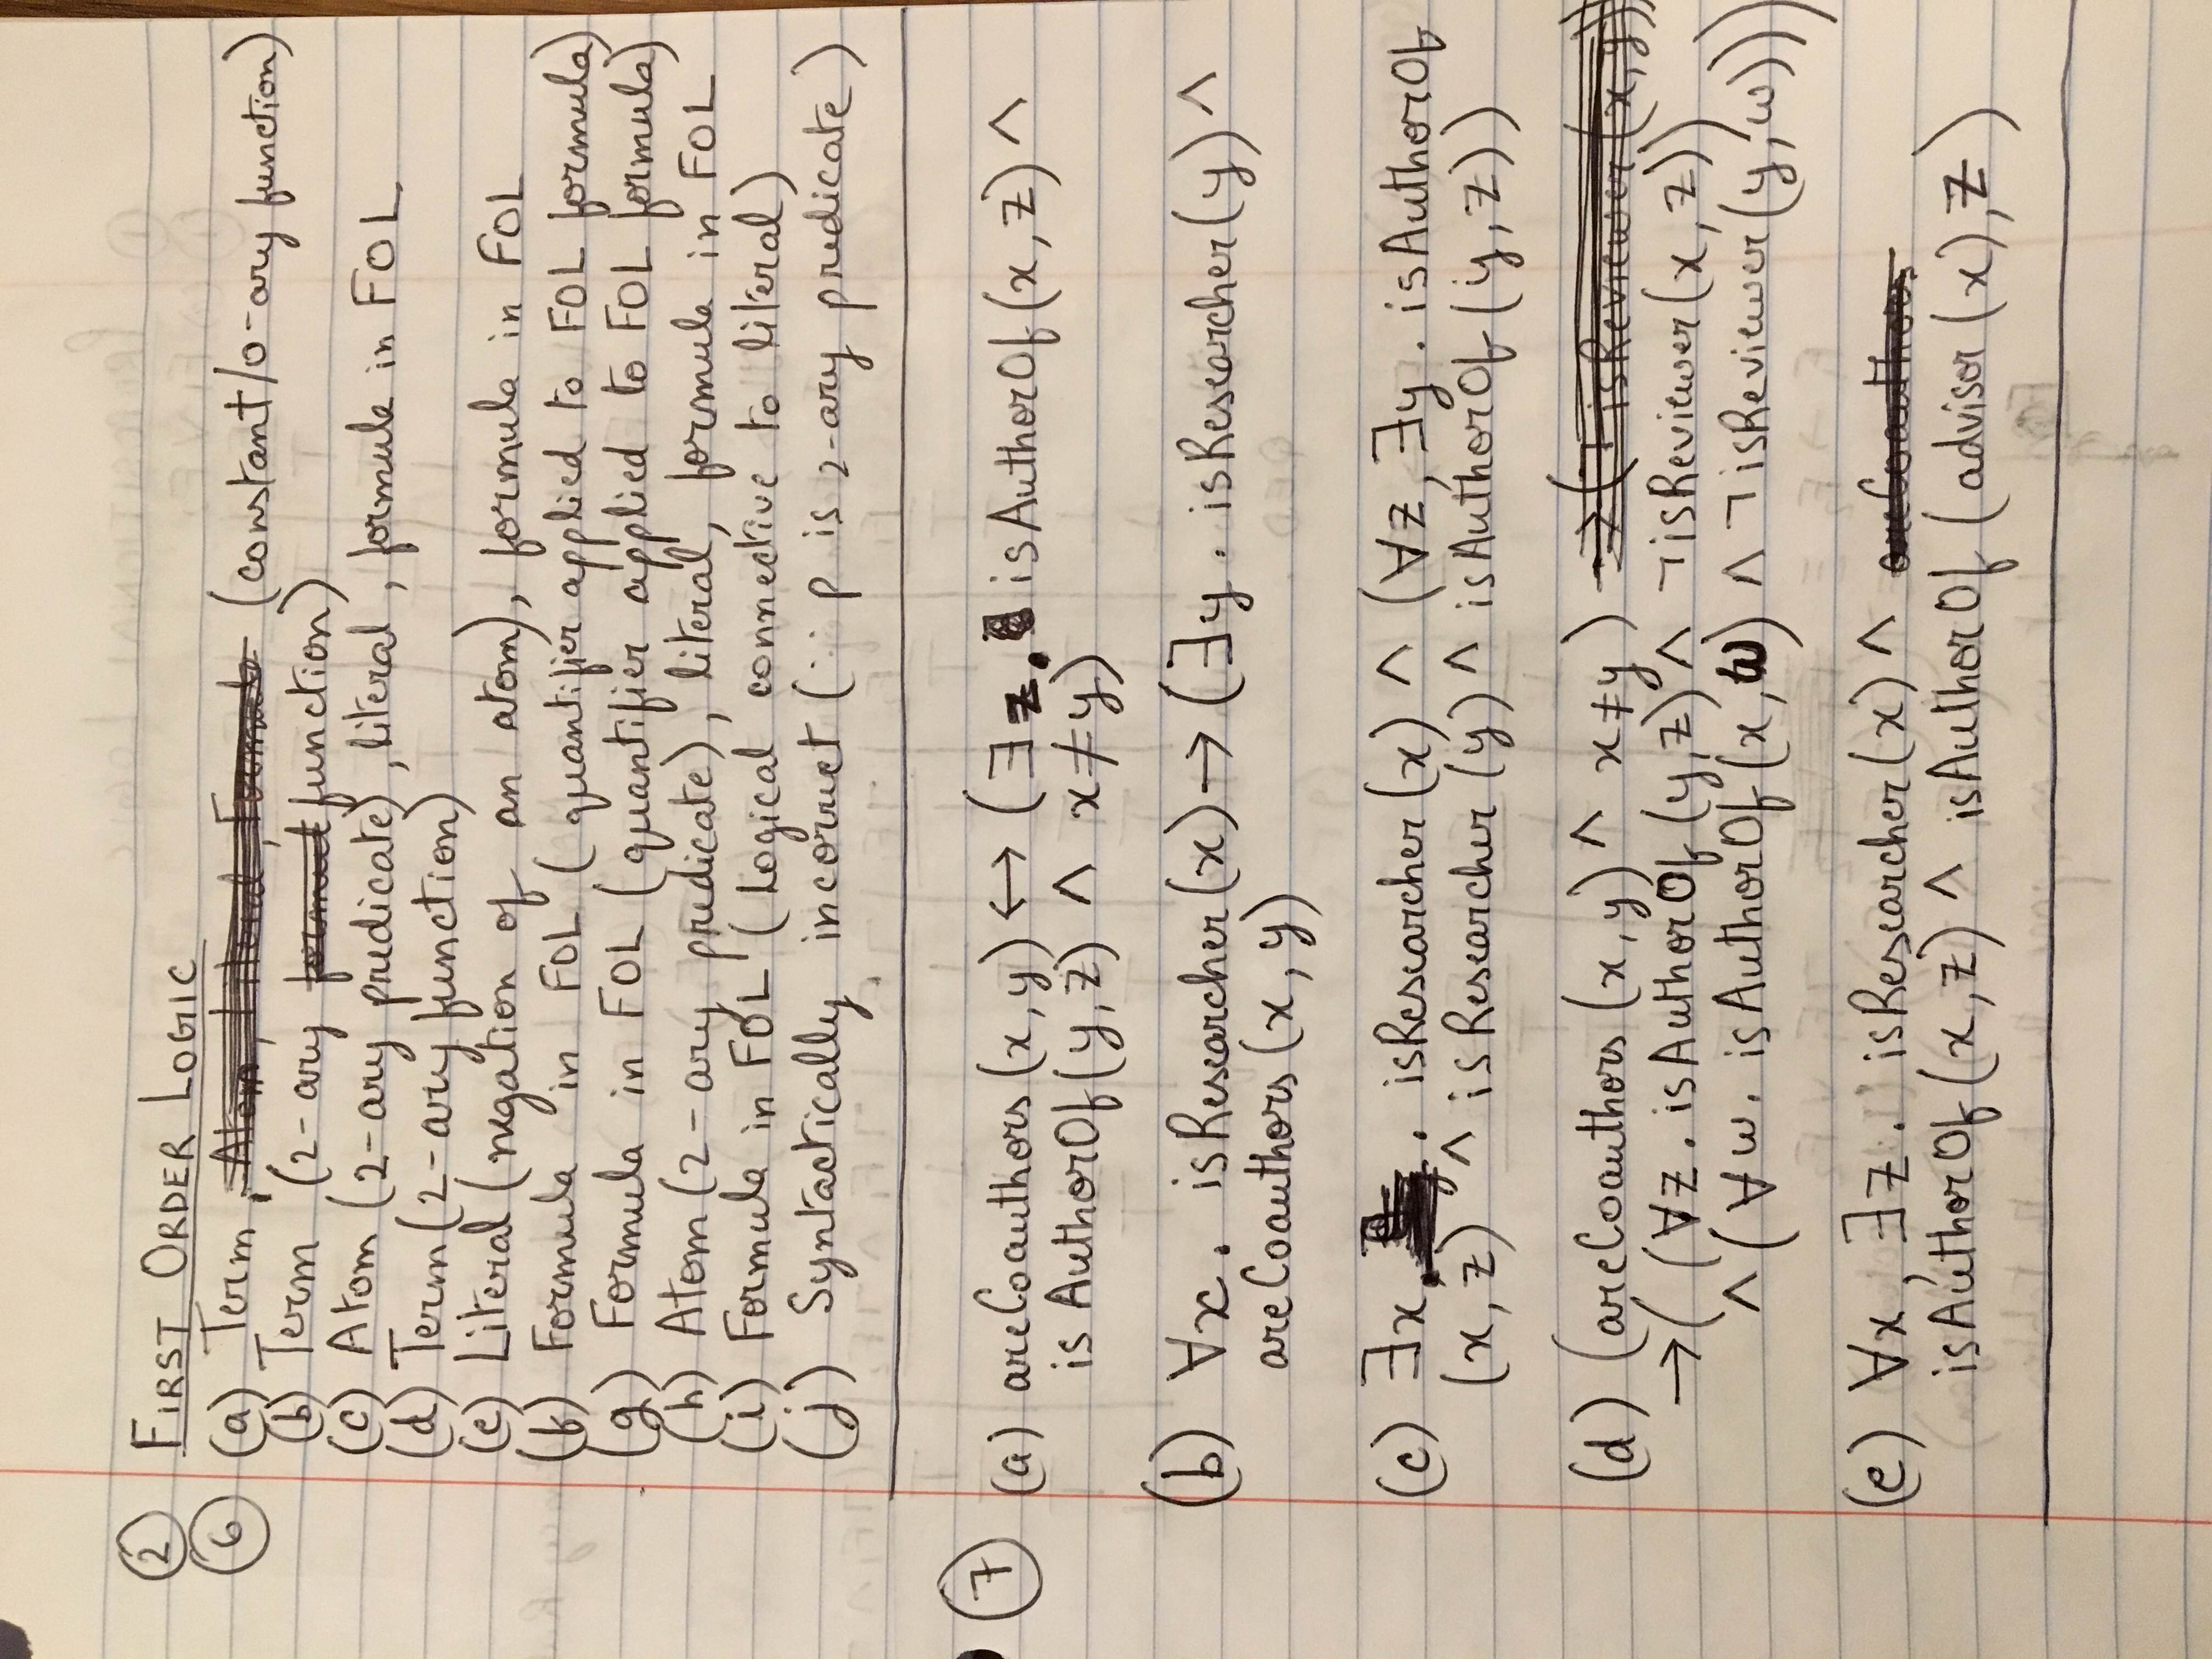 ② FIRST ORDER LOGIC
⑥ (a) Term, (constant/0-ary function)
(b) Term (2-ary function)
(c) Atom (2-ary predicate), literal, formula in FOL.
(d) Term (2-ary function)
(e) Literal (negation of an atom), formula in FOL
(f) Formula in FOL (quantifier applied to FOL formula)
(g) Formula in FOL (quantifier applied to FOL formula)
(h) Atom (2-ary predicate), literal, formula in FOL
(i) Formula in FOL (Logical connective to literal)
(j) Syntactically incorrect (∵ p is 2-ary predicate)
⑦ (a) areCoauthors (x, y) ↔ (∃z. isAuthorOf (x, z) ∧
isAuthorOf (y, z) ∧ x≠y)
(b) ∀x. isResearcher (x) → (∃y. isResearcher (y) ∧
areCoauthors (x, y)
(c) ∃x. isResearcher (x) ∧ (∀z, ∃y. isAuthorOf
(x, z) ∧ isResearcher (y) ∧ isAuthorOf (y, z))
(d) (areCoauthors (x, y) ∧ x≠y)
→ ( (∀z. isAuthorOf (y, z) ∧ ¬isReviewer (x, z))
∧ (∀w. isAuthorOf (x, w) ∧ ¬isReviewer (y, w)))
(e) ∀x, ∃z. isResearcher (x) ∧
isAuthorOf (x, z) ∧ isAuthorOf (advisor (x), z)